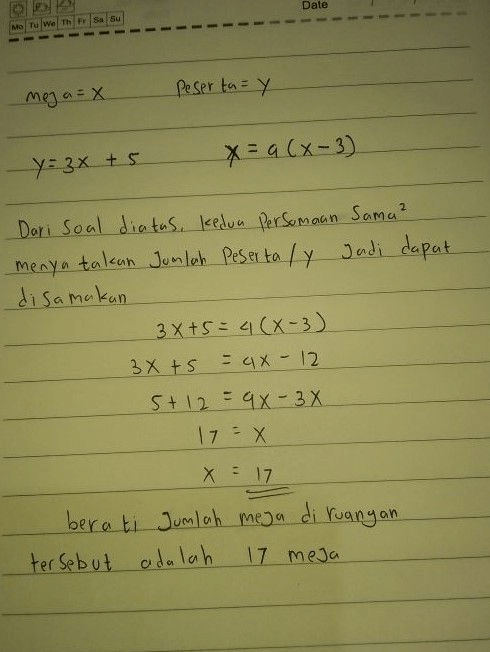 Date
Mo Tu We Th Fr Sa Su
meja = x Peserta = y
y = 3x + 5 x = 4(x-3)
Dari Soal diatas, kedua Persamaan Sama²
menyatakan Jumlah Peserta/y Jadi dapat
disamakan
3x+5 = 4(x-3)
3x + 5 = 4x - 12
5+12 = 4x - 3x
17 = x
x = 17
berati Jumlah meja di ruangan
tersebut adalah 17 meja